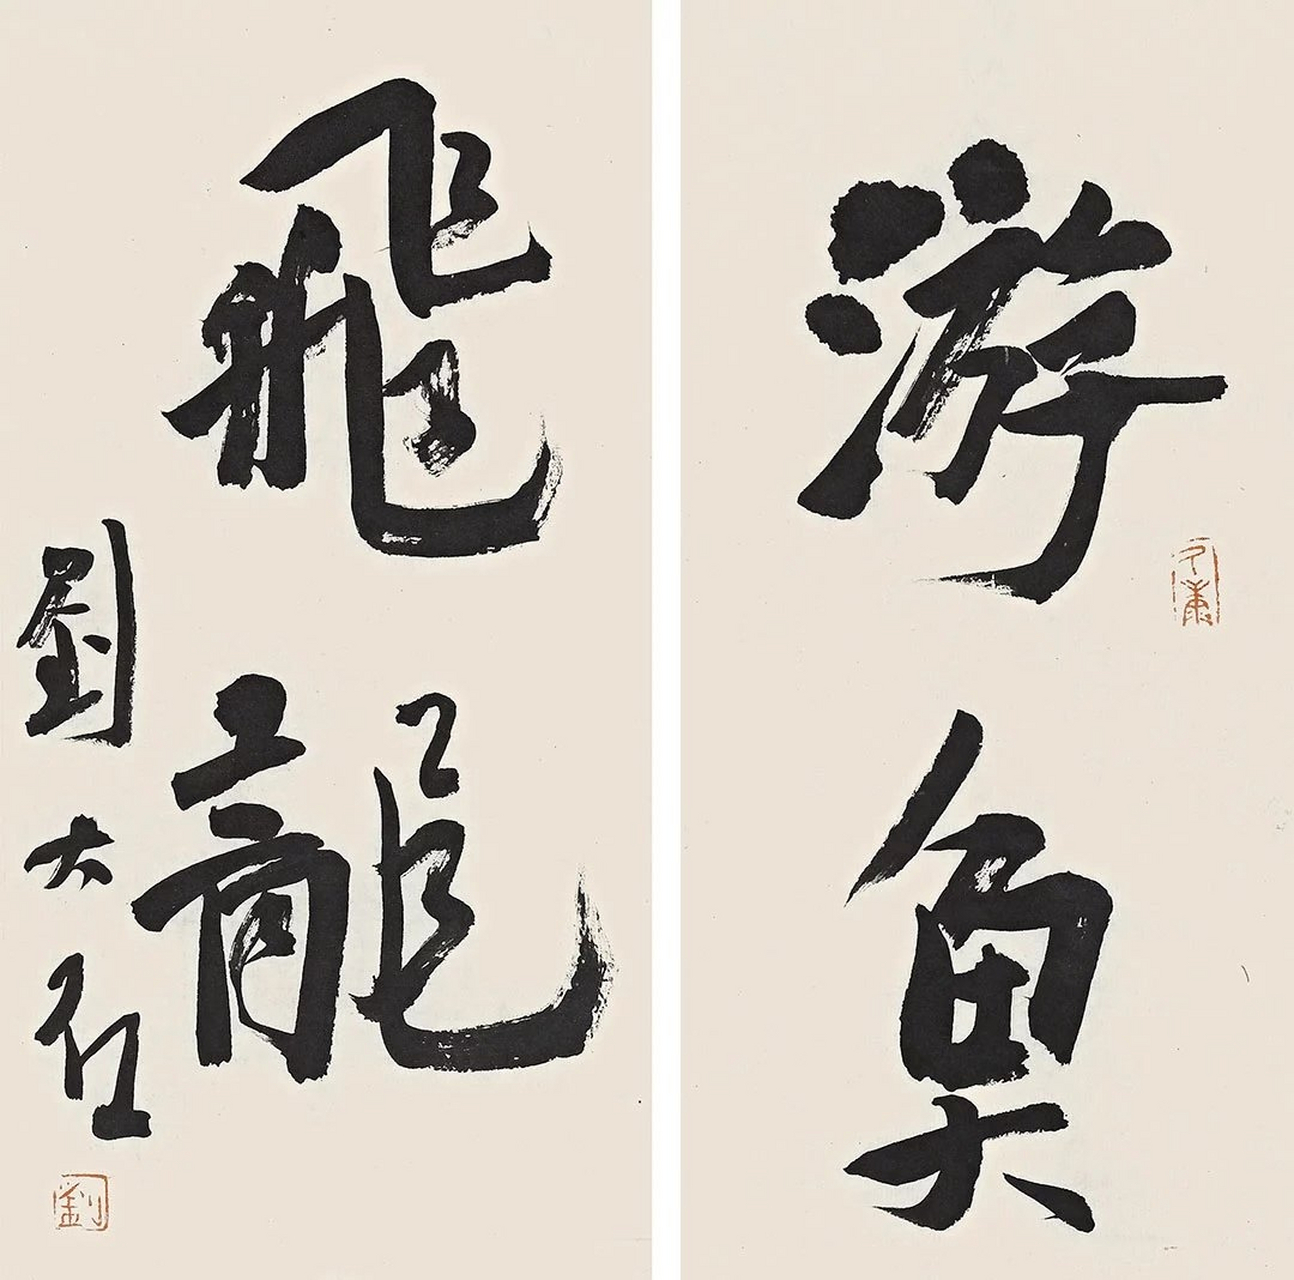 游魚
飛龍
劉大
劉